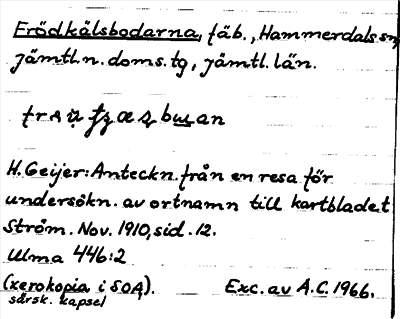 Frödkälsbodarna, fäb., Hammerdals sn,
Jämtl. n. doms. tg, Jämtl. län.
H. Geijer: Anteckn. från en resa för
undersökn. av ortnamn till kartbladet
Ström. Nov. 1910, sid. 12.
Ulma 446:2
(xerokopia i SOA). Exc. av A.C. 1966.
särsk. kapsel